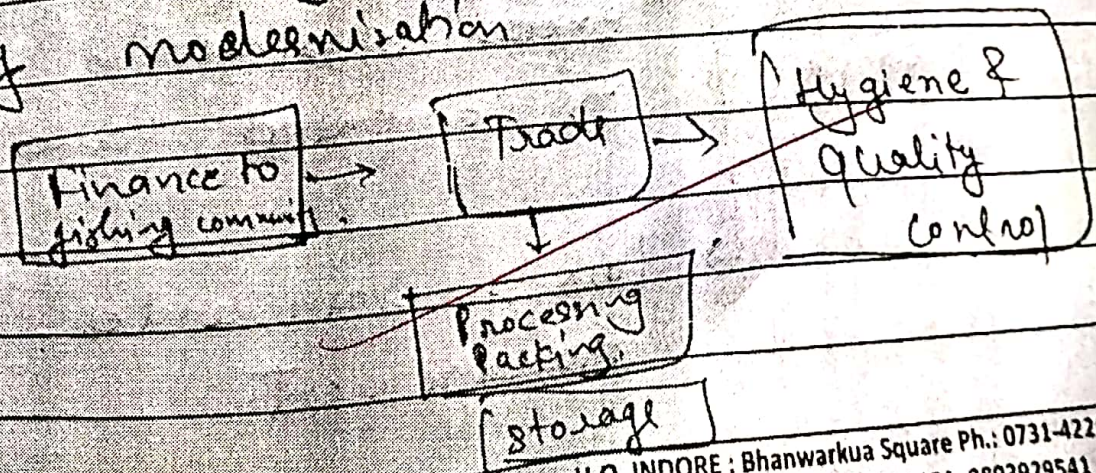 modernisation
Finance to
fishing community.
Trade
Hygiene &
quality
control
Processing
Packing,
storage
INDORE : Bhanwarkua Square Ph.: 0731-422